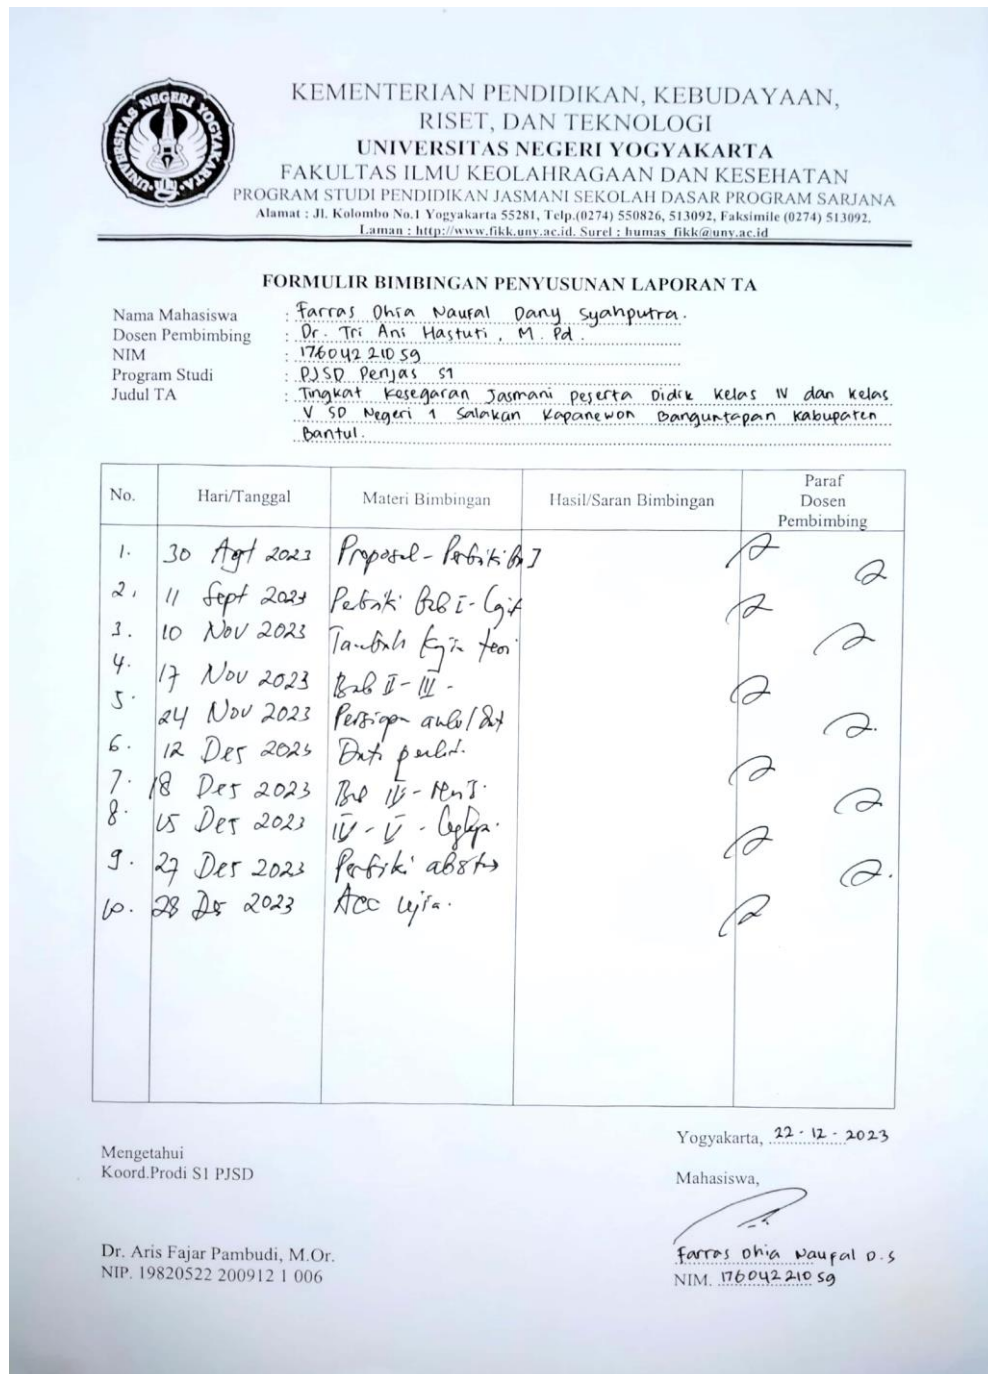 UNIVERSITAS NEGERI YOGYAKARTA
KEMENTERIAN PENDIDIKAN, KEBUDAYAAN,
RISET, DAN TEKNOLOGI
UNIVERSITAS NEGERI YOGYAKARTA
FAKULTAS ILMU KEOLAHRAGAAN DAN KESEHATAN
PROGRAM STUDI PENDIDIKAN JASMANI SEKOLAH DASAR PROGRAM SARJANA
Alamat : Jl. Kolombo No.1 Yogyakarta 55281, Telp.(0274) 550826, 513092, Faksimile (0274) 513092.
Laman : http://www.fikk.uny.ac.id. Surel : humas_fikk@uny.ac.id
FORMULIR BIMBINGAN PENYUSUNAN LAPORAN TA
Nama Mahasiswa : Farras Dhia Naufal Dany Syahputra.
Dosen Pembimbing : Dr. Tri Ani Hastuti, M.Pd.
NIM : 17604221059
Program Studi : PJSD Penjas S1
Judul TA : Tingkat Kesegaran Jasmani Peserta Didik Kelas IV dan Kelas
V SD Negeri 1 Salakan Kapanewon Banguntapan Kabupaten
Bantul.
No. Hari/Tanggal Materi Bimbingan Hasil/Saran Bimbingan Paraf Dosen Pembimbing
1. 30 Agt 2023 Proposal -
2. 11 Sept 2023 Bab I -
3. 10 Nov 2023 teori
4. 17 Nov 2023 Bab II - III -
5. 24 Nov 2023
6. 12 Des 2023
7. 18 Des 2023 Bab IV -
8. Des 2023 IV - V -
9. 27 Des 2023
10. 28 Des 2023 Acc ujian.
Yogyakarta, 22 - 12 - 2023
Mengetahui
Koord.Prodi S1 PJSD
Mahasiswa,
Dr. Aris Fajar Pambudi, M.Or.
NIP. 19820522 200912 1 006
Farras Dhia Naufal D.S
NIM. 17604221059